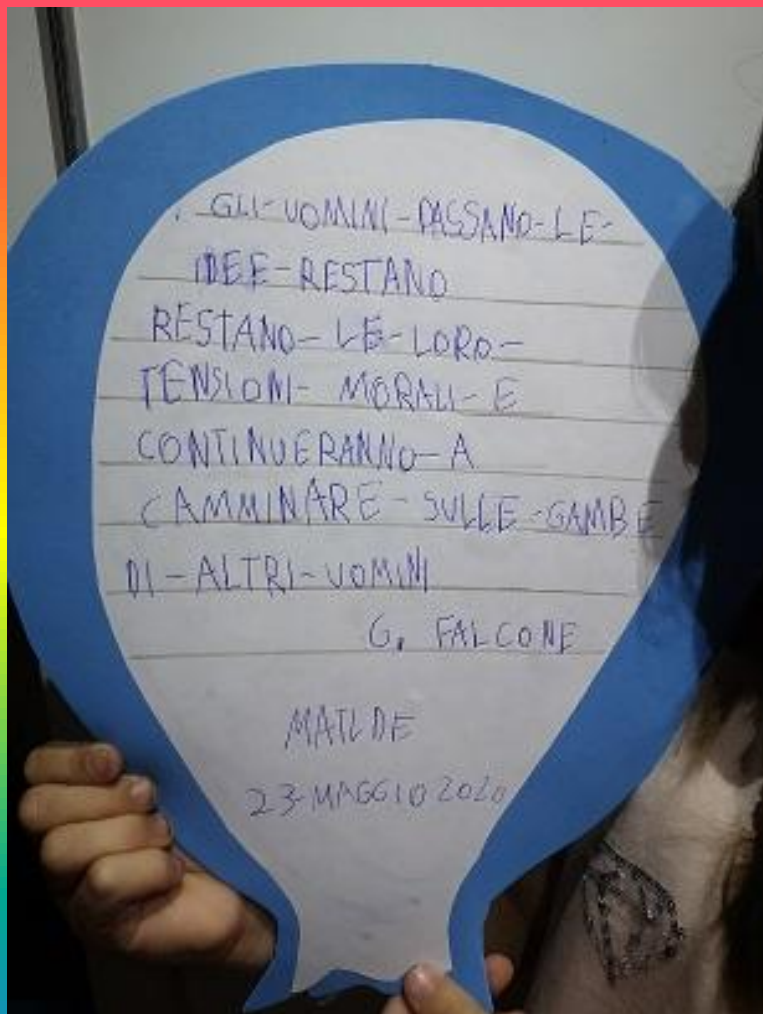 . GLI-UOMINI-PASSANO-LE-
IDEE-RESTANO
RESTANO-LE-LORO-
TENSIONI-MORALI-E
CONTINUERANNO-A
CAMMINARE-SULLE-GAMBE
DI-ALTRI-UOMINI
G. FALCONE
MATILDE
23-MAGGIO 2020